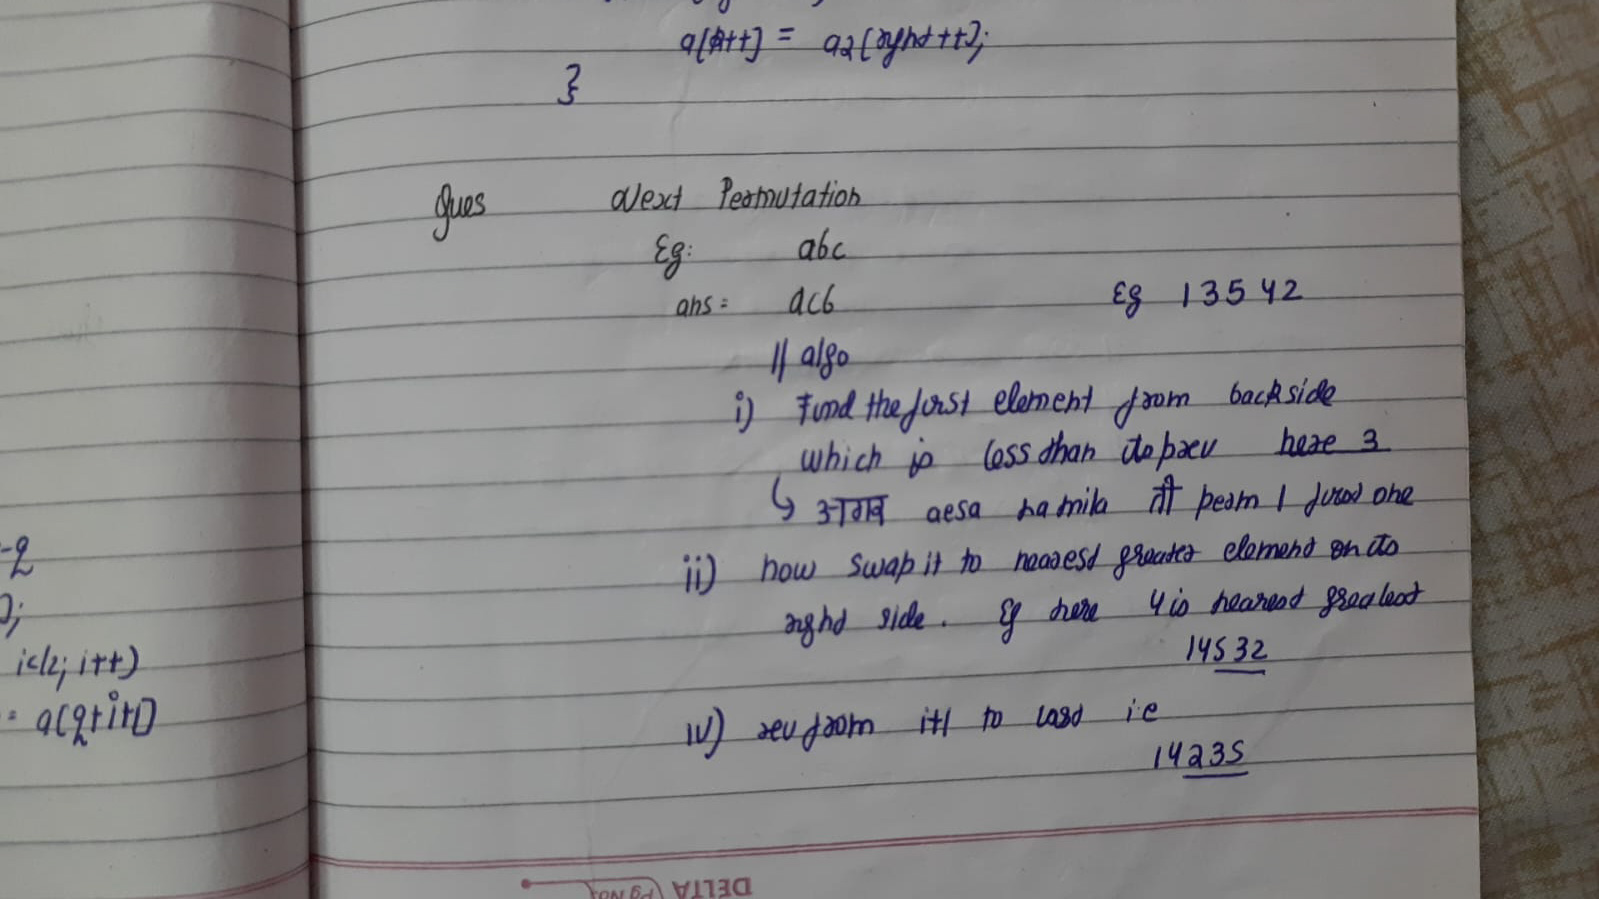 a[k++] = a2[right++];
}
Ques Next Permutation
Eg: abc
ans = acb
Eg 13542
// algo
i) Find the first element from backside
which is less than its prev here 3
↳ अगर aesa na mila तो perm 1 first one
ii) now swap it to nearest greater element on its
right side. Eg here 4 is nearest greatest
14532
iv) rev from i+1 to last i.e
14235
i<n; i++)
DELTA
Pg No.